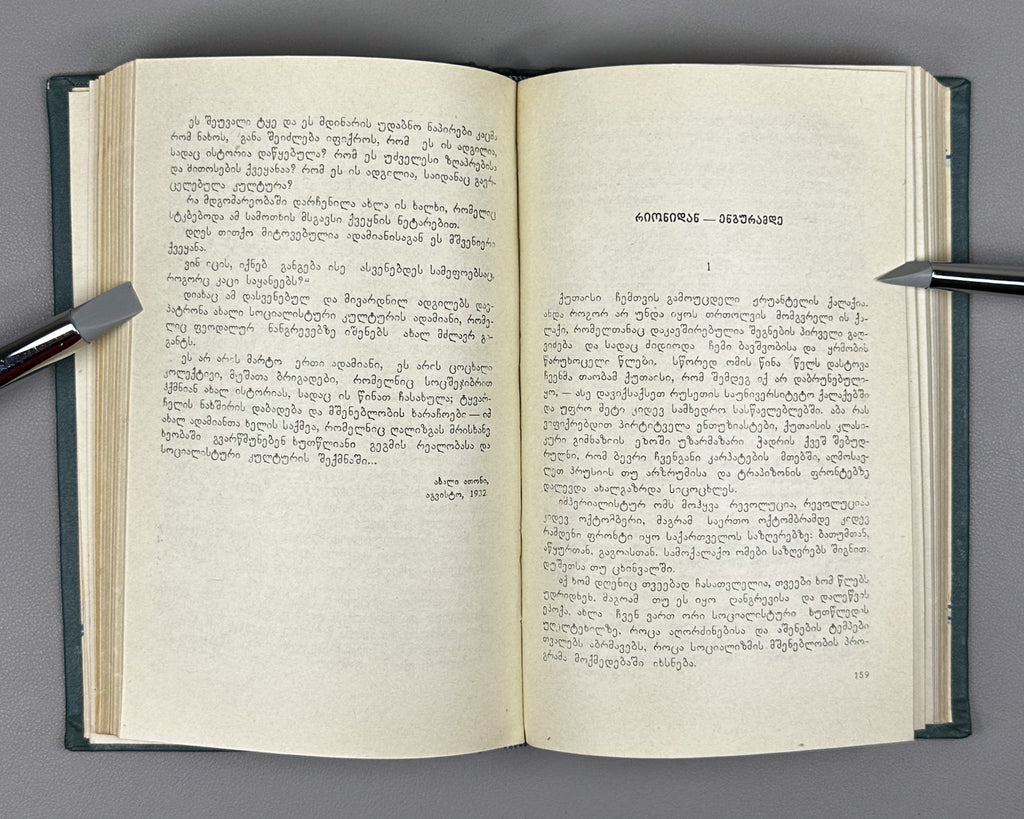 ეს შეუვალი ტყე და ეს მდინარის უდაბნო ნაპირები კაცმა
რომ ნახოს, განა შეიძლება იფიქროს, რომ ეს ის ადგილია,
სადაც ისტორია დაწყებულა? რომ ეს უძველესი ზღაპრებისა
და მითოსების ქვეყანაა? რომ ეს ის ადგილია, საიდანაც გავრ-
ცელებულა კულტურა?
რა მდგომარეობაში დარჩენილა ახლა ის ხალხი, რომელიც
სტკბებოდა ამ სამოთხის მსგავსი ქვეყნის ნეტარებით.
დღეს თითქო მიტოვებულია ადამიანისაგან ეს მშვენიერი
ქვეყანა.
ვინ იცის, იქნებ განგება ისე ასვენებდეს სამეფოებსაც,
როგორც კაცი საყანეებს?“
დიახაც ამ დასვენებულ და მივარდნილ ადგილებს დაე-
პატრონა ახალი სოციალისტური კულტურის ადამიანი, რომე-
ლიც ფეოდალურ ნანგრევებზე იშენებს ახალ მძლავრ გი-
განტს.
ეს არ არის მარტო ერთი ადამიანი, ეს არის ცოცხალი
კოლექტივი, მუშათა ბრიგადები, რომელნიც სოცშეჯიბრით
ჰქმნიან ახალ ისტორიას, სადაც ის წინათ ჩასახულა; ტყვარ-
ჩელის ნახშირის დაბადება და მშენებლობის ხარაჩოები — იმ
ახალ ადამიანთა ხელის საქმეა, რომელნიც ღალიზგას მრისხანე
ხეობაში გვარწმუნებენ ხუთწლიანი გეგმის რეალობასა და
სოციალისტური კულტურის შექმნაში...
ახალი ათონი,
აგვისტო, 1932
რიონიდან — ენგურამდე
1
ქუთაისი ჩემთვის გამოუცდელი ჟრუანტელის ქალაქია.
ახდა როგორ არ უნდა იყოს თრთოლვის მომგვრელი ის ქა-
ლაქი, რომელთანაც დაკავშირებულია შეგნების პირველი გაღ-
ვიძება და სადაც მიდიოდა ჩემი ბავშვობისა და ყრმობის
წარუხოცელი წლები. სწორედ ომის წინა წელს დასტოვა
ჩვენმა თაობამ ქუთაისი, რომ შემდეგ იქ არ დაბრუნებულ-
იყო, — ასე დავიქსაქსეთ რუსეთის საუნივერსიტეტო ქალაქებში
და უფრო მეტი კიდევ სამხედრო სასწავლებლებში. აბა რას
ვიფიქრებდით პირტიტველა ენთუზიასტები, ქუთაისის კლასი-
კური გიმნაზიის ეზოში უზარმაზარი ჭადრის ქვეშ შებუდ-
რულნი, რომ ბევრი ჩვენგანი კარპატების მთებში, აღმოსავ-
ლეთ პრუსიის თუ არზრუმისა და ტრაპიზონის ფრონტებზე
დალევდა ახალგაზრდა სიცოცხლეს.
იმპერიალისტურ ომს მოჰყვა რევოლუცია, რევოლუციას
კიდევ ოქტომბერი, მაგრამ საერთო ოქტომბრამდე კიდევ
რამდენი ფრონტი იყო საქართველოს საზღვრებზე: ბათუმთან,
აწყურთან, გაგრასთან. სამოქალაქო ომები საზღვრებს შიგნით.
დუშეთსა თუ ცხინვალში.
აქ ხომ დღენიც თვეებად ჩასათვლელია, თვეები ხომ წლებს
უდრიდნენ. მაგრამ თუ ეს იყო დანგრევისა და დალეწვის
ეპოქა, ახლა ჩვენ ვართ ორი სოციალისტური ხუთწლედის
უღელტეხილზე, როცა აღორძინებისა და აშენების ტემპები
თვალებს აბრმავებს, როცა სოციალიზმის მშენებლობის პრო-
გრამა მოქმედებაში იხსნება.
159